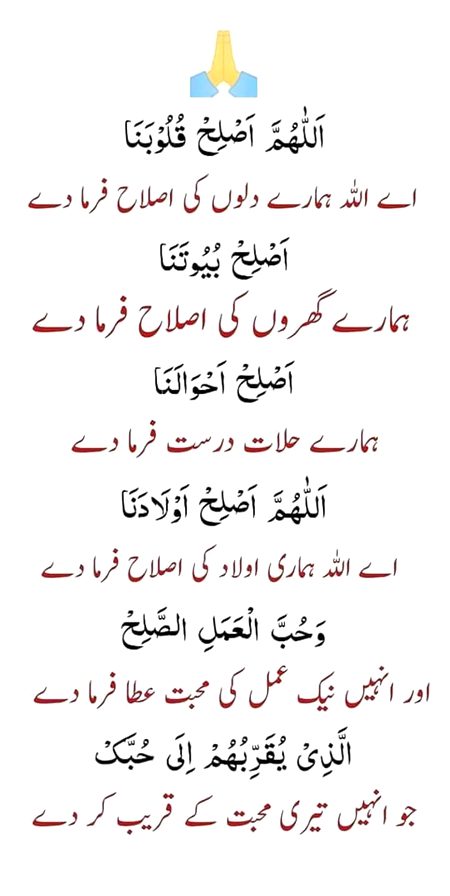 اَللّٰهُمَّ اَصْلِحْ قُلُوْبَنَا
اے اللہ ہمارے دلوں کی اصلاح فرما دے
اَصْلِحْ بُيُوتَنَا
ہمارے گھروں کی اصلاح فرما دے
اَصْلِحْ اَحْوَالَنَا
ہمارے حلات درست فرما دے
اَللّٰهُمَّ اَصْلِحْ اَوْلَادَنَا
اے اللہ ہماری اولاد کی اصلاح فرما دے
وَحُبَّ الْعَمَلِ الصَّلِحْ
اور انہیں نیک عمل کی محبت عطا فرما دے
الَّذِىْ يُقَرِّبُهُمْ اِلَى حُبَّکْ
جو انہیں تیری محبت کے قریب کر دے